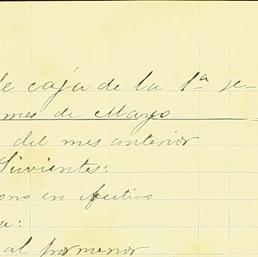 de caja de la 1ª se-
mes de Mayo
del mes anterior
Sirvientes:
ono en efectivo
a:
al pormenor